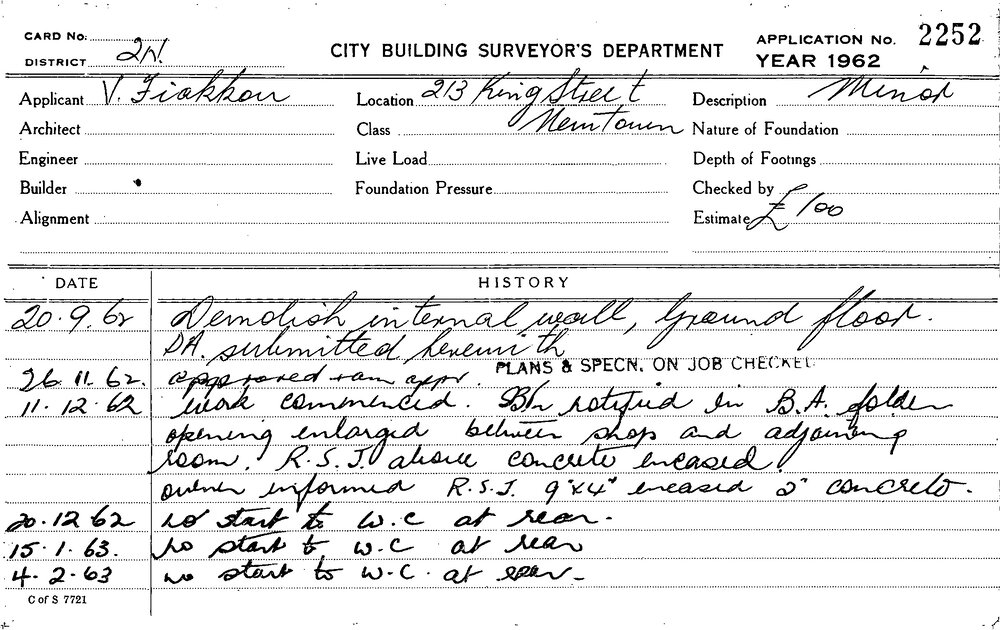 CARD No:
DISTRICT 2N.
CITY BUILDING SURVEYOR'S DEPARTMENT
APPLICATION No. 2252
YEAR 1962
Applicant V. Fiakkou Location 213 King Street Description Minor
Architect Class Newtown Nature of Foundation
Engineer Live Load Depth of Footings
Builder Foundation Pressure Checked by
Alignment Estimate £100
DATE HISTORY
20.9.62 Demolish internal wall, Ground floor.
DA. submitted herewith
PLANS & SPECN. ON JOB CHECKED
26.11.62. approved appr.
11.12.62 work commenced. B/n notified in B.A. folder
opening enlarged between shop and adjoining
room. R.S.J. above concrete encased.
owner informed R.S.J. 9"x4" encased 2" concrete.
20.12.62 no start to W.C at rear.
15.1.63. no start to W.C at rear
4.2.63 no start to W.C. at rear
C of S 7721